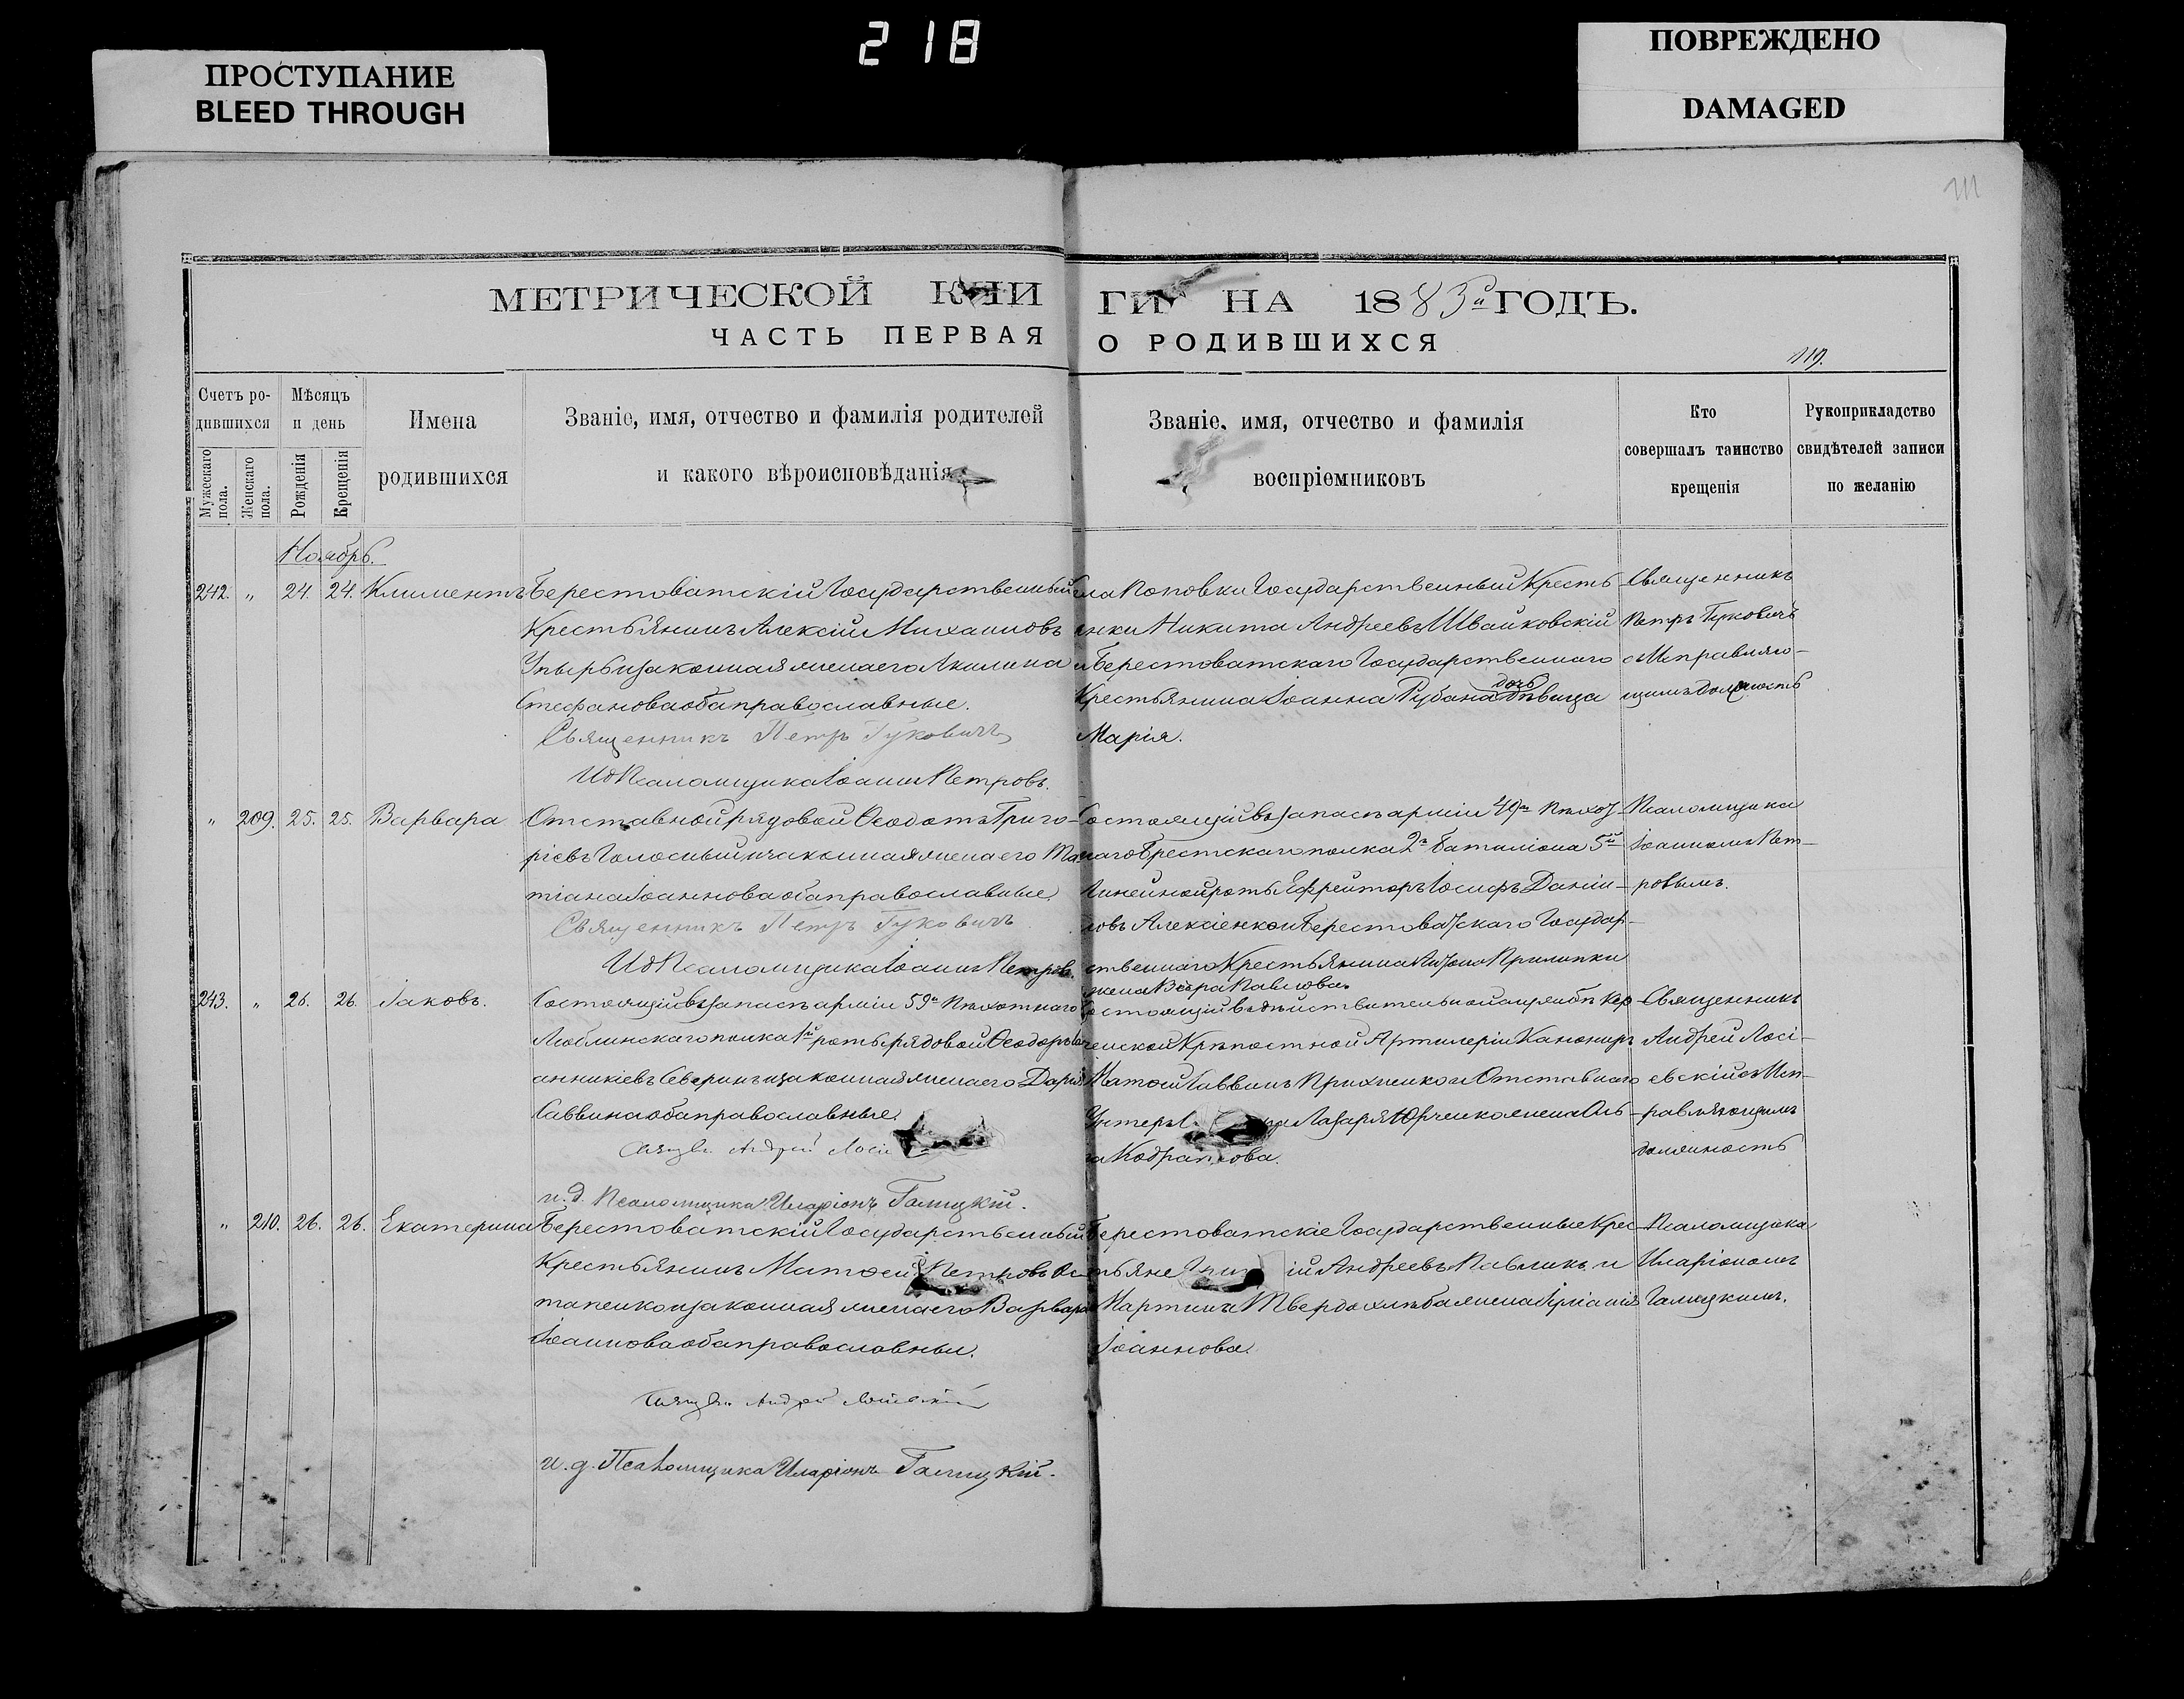 218
ПРОСТУПАНИЕ
BLEED THROUGH
ПОВРЕЖДЕНО
DAMAGED
111
МЕТРИЧЕСКОЙ КНИ
ГИ НА 1883й ГОДЪ.
ЧАСТЬ ПЕРВАЯ
О РОДИВШИХСЯ
119.
Счетъ ро-
дившихся
Мужескаго пола.
Женскаго пола.
Мѣсяцъ
и день
Рожденія
Крещенія
Имена
родившихся
Званіе, имя, отчество и фамилія родителей
и какого вѣроисповѣданія
Званіе, имя, отчество и фамилія
воспріемниковъ
Кто
совершалъ таинство
крещенія
Рукоприкладство
свидѣтелей записи
по желанію
Ноябрь.
242. " 24. 24. Климентъ
Берестоватскій Государственный
Крестьянинъ Алексій Михаиловъ
и законная жена его Акилина
Стефанова оба православные.
Священникъ Петръ Гуковичъ
ИД Псаломщика Іоаннъ Петровъ.
села Поповки Государственный Кресть-
Никита Андреевъ Швайковскій
и Берестоватскаго Государственнаго
Крестьянина Іоанна Рубана дочь дѣвица
Марія.
Священникъ
Петръ Гуковичъ
съ Исправляю-
щимъ должность
" 209. 25. 25. Варвара
Отставной рядовой Ѳеодотъ Григо-
ріевъ Голосный и законная жена его Та-
тіана Іоаннова оба православные.
Священникъ Петръ Гуковичъ
ИД Псаломщика Іоаннъ Петровъ.
Состоящій въ запасѣ арміи 49го Пѣхот-
наго Брестскаго полка 2го баталіона 5й
Линейной роты Ефрейторъ Іосифъ Даніи-
ловъ Алексіенко и Берестоватскаго Государ-
ственнаго Крестьянина Прилипки
жена Вѣра Павлова.
Псаломщика
Іоанномъ Пет-
ровымъ.
243. " 26. 26. Іаковъ.
Состоящій въ запасѣ арміи 59го Пѣхотнаго
Люблинскаго полка 1й роты рядовой Ѳеодоръ Іо-
анникіевъ Северинъ и законная жена его Дарія
Саввина оба православные.
Священ. Андрей Лосі
и.д. Псаломщика Иларіонъ Галицкій.
Состоящій въ дѣйствительной службѣ Кер-
ченской Крѣпостной Артилеріи Канониръ
Матѳей Саввинъ Прихненко и Отставнаго
Унтеръ Лазаря Юрченко жена Оль-
га Кодратова.
Священникъ
Андрей Лосі-
евскій съ Исп-
равляющимъ
должность
" 210. 26. 26. Екатерина
Берестоватскій Государственный
Крестьянинъ Матѳей Петровъ Ос-
тапенко и законная жена его Варвара
Іоаннова оба православны.
Священ. Андрей Лосіевскій
и.д. Псаломщика Иларіонъ Галицкій.
Берестоватскіе Государственные Крес-
тьяне Андреевъ Павликъ и
Мартина Твердохлѣба жена
Іоаннова.
Псаломщика
Иларіономъ
Галицкимъ.